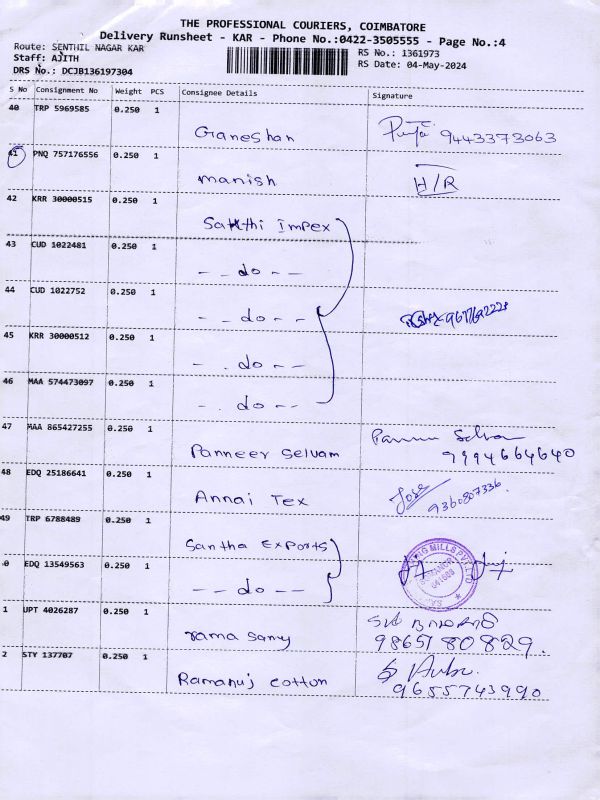 THE PROFESSIONAL COURIERS, COIMBATORE
Delivery Runsheet - KAR - Phone No.:0422-3505555 - Page No.:4
Route: SENTHIL NAGAR KAR
Staff: AJITH
DRS No.: DCJB136197304
RS No.: 1361973
RS Date: 04-May-2024
S No Consignment No Weight PCS Consignee Details Signature
40 TRP 5969585 0.250 1
Ganeshan 9443373063
41 PNQ 757176556 0.250 1
manish H/R
42 KRR 30000515 0.250 1
Sakthi Impex
43 CUD 1022481 0.250 1
- - do - -
44 CUD 1022752 0.250 1
- - do - -
45 KRR 30000512 0.250 1
- . do - -
46 MAA 574473097 0.250 1
- . do - -
47 MAA 865427255 0.250 1
Panneer Selvam
9994664640
48 EDQ 25186641 0.250 1
Annai Tex Jose 9360807336
49 TRP 6788489 0.250 1
Santha Exports
0 EDQ 13549563 0.250 1
- - do - -
MILLS PVT LTD
1 UPT 4026287 0.250 1
rama samy 9865780829.
2 STY 137707 0.250 1
Ramanuj cotton 9655743990